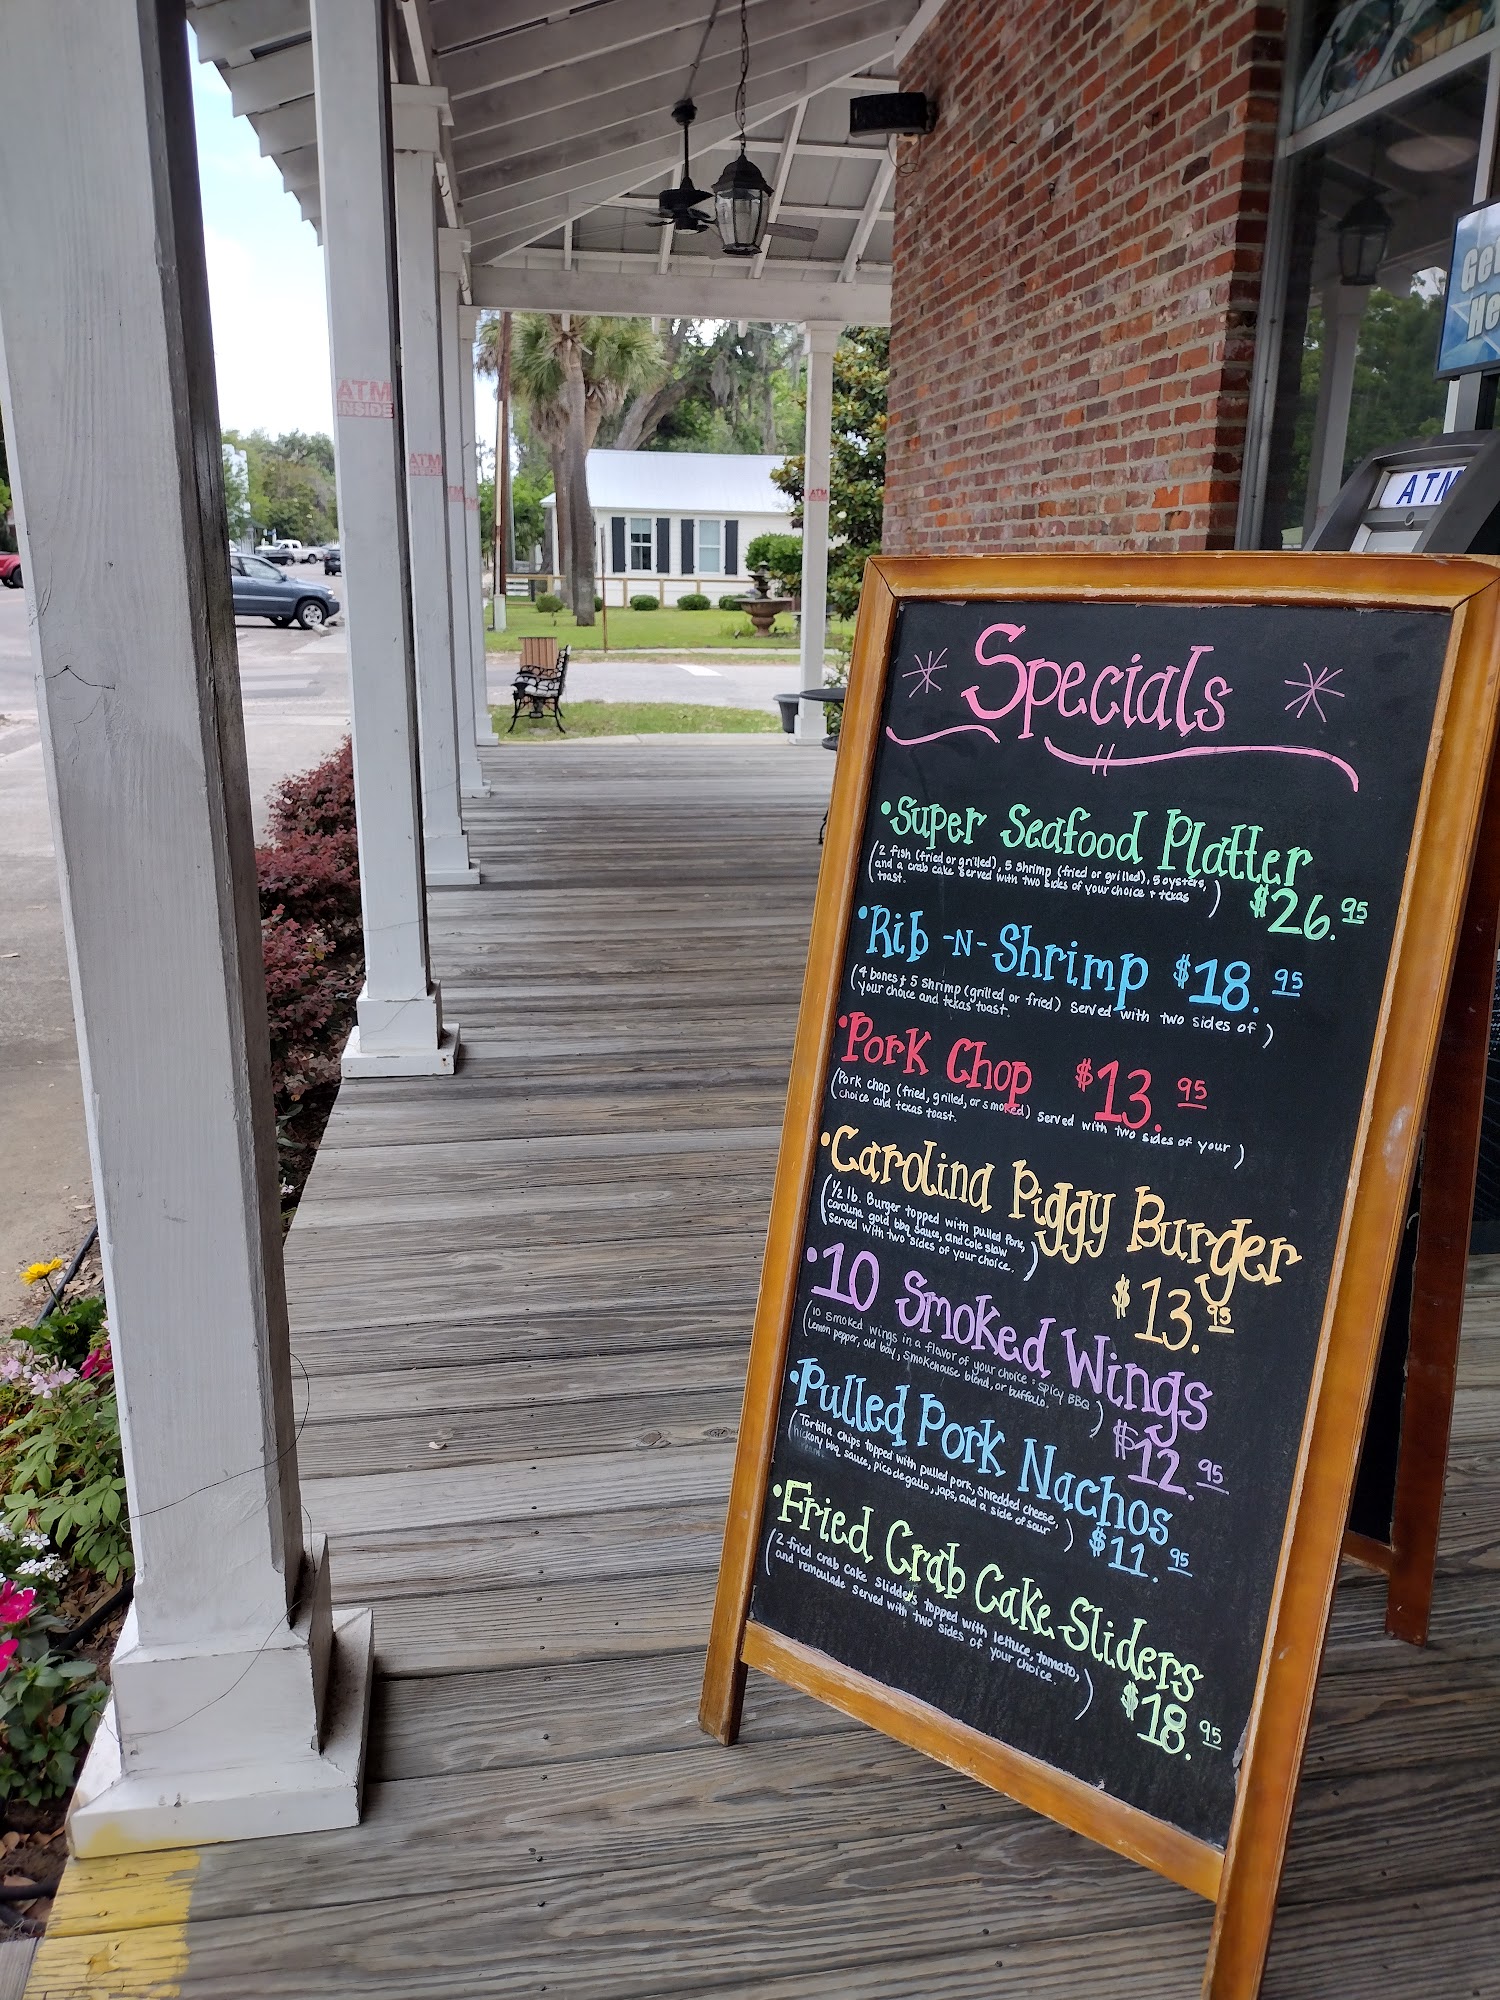 ATM
INSIDE
ATM
INSIDE
ATM
ATM
Get
He
ATM
Specials
• Super Seafood Platter
(2 fish (fried or grilled), 5 shrimp (fried or grilled), 5 oysters,
and a crab cake served with two sides of your choice + texas
toast.)
$26.95
• Rib -N- Shrimp $18.95
(4 bones + 5 shrimp (grilled or fried) served with two sides of
your choice and texas toast.)
• Pork Chop $13.95
(Pork chop (fried, grilled, or smoked) served with two sides of your
choice and texas toast.)
• Carolina Piggy Burger
(1/2 lb. Burger topped with pulled Pork,
carolina gold bbq sauce, and cole slaw
served with two sides of your choice.)
$13.95
• 10 Smoked Wings
(10 smoked wings in a flavor of your choice: spicy BBQ
lemon pepper, old bay, smokehouse blend, or buffalo.)
$12.95
• Pulled Pork Nachos
(Tortilla chips topped with pulled pork, shredded cheese,
hickory bbq sauce, pico de gallo, japs, and a side of sour
cream.)
$11.95
• Fried Crab Cake Sliders
(2 fried crab cake slidders topped with lettuce, tomato,
and remoulade served with two sides of your choice.)
$18.95